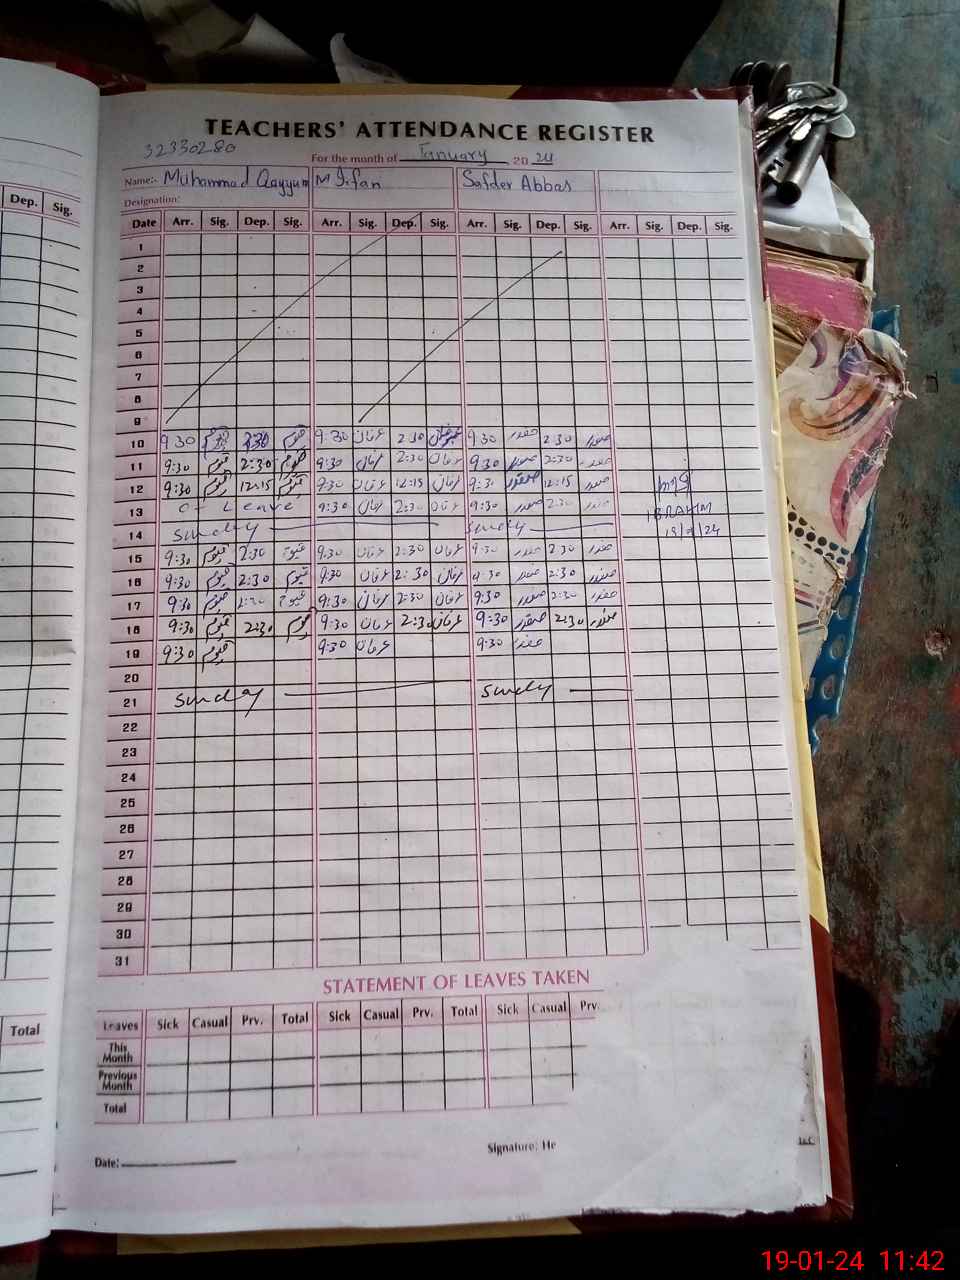 TEACHERS' ATTENDANCE REGISTER
32330280
For the month of January 2024
Name:- Muhammad Qayyum M Irfan Safder Abbas
Designation:
Dep. Sig.
Date Arr. Sig. Dep. Sig. Arr. Sig. Dep. Sig. Arr. Sig. Dep. Sig. Arr. Sig. Dep. Sig.
1
2
3
4
5
6
7
8
9
10 9:30 قیوم 2:30 قیوم 9:30 عرفان 2:30 عرفان 9:30 صفدر 2:30 صفدر
11 9:30 قیوم 2:30 قیوم 9:30 عرفان 2:30 عرفان 9:30 صفدر 2:30 صفدر
12 9:30 قیوم 12:15 قیوم 9:30 عرفان 12:15 عرفان 9:30 صفدر 12:15 صفدر
13 Leave 9:30 عرفان 2:30 عرفان 9:30 صفدر 2:30 صفدر IBRAHIM
14 Sunday Sunday
15 9:30 قیوم 2:30 قیوم 9:30 عرفان 2:30 عرفان 9:30 صفدر 2:30 صفدر
16 9:30 قیوم 2:30 قیوم 9:30 عرفان 2:30 عرفان 9:30 صفدر 2:30 صفدر
17 9:30 قیوم 2:30 قیوم 9:30 عرفان 2:30 عرفان 9:30 صفدر 2:30 صفدر
18 9:30 قیوم 2:30 قیوم 9:30 عرفان 2:30 عرفان 9:30 صفدر 2:30 صفدر
19 9:30 قیوم 9:30 عرفان 9:30 صفدر
20
21 Sunday Sundy
22
23
24
25
26
27
28
29
30
31
STATEMENT OF LEAVES TAKEN
Total
Leaves Sick Casual Prv. Total Sick Casual Prv. Total Sick Casual Prv.
This Month
Previous Month
Total
Date: Signature: He
19-01-24 11:42